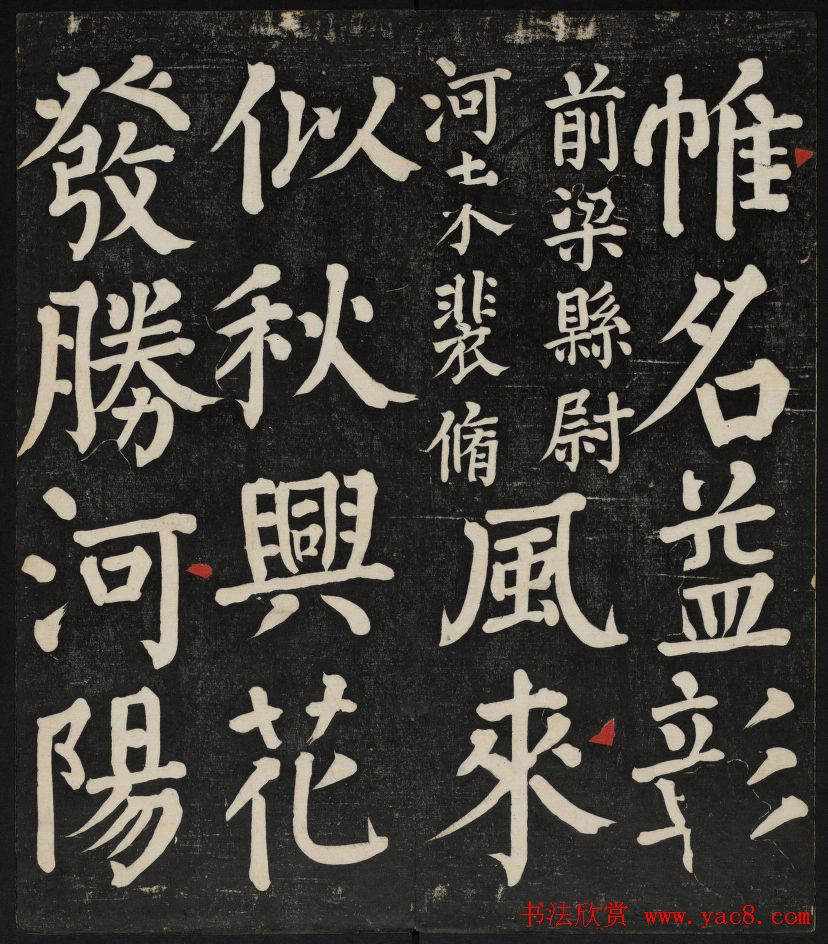 帷名益彰
前梁縣尉
河裴脩
風來
似秋興花
發勝河陽
书法欣赏 www.yac8.com